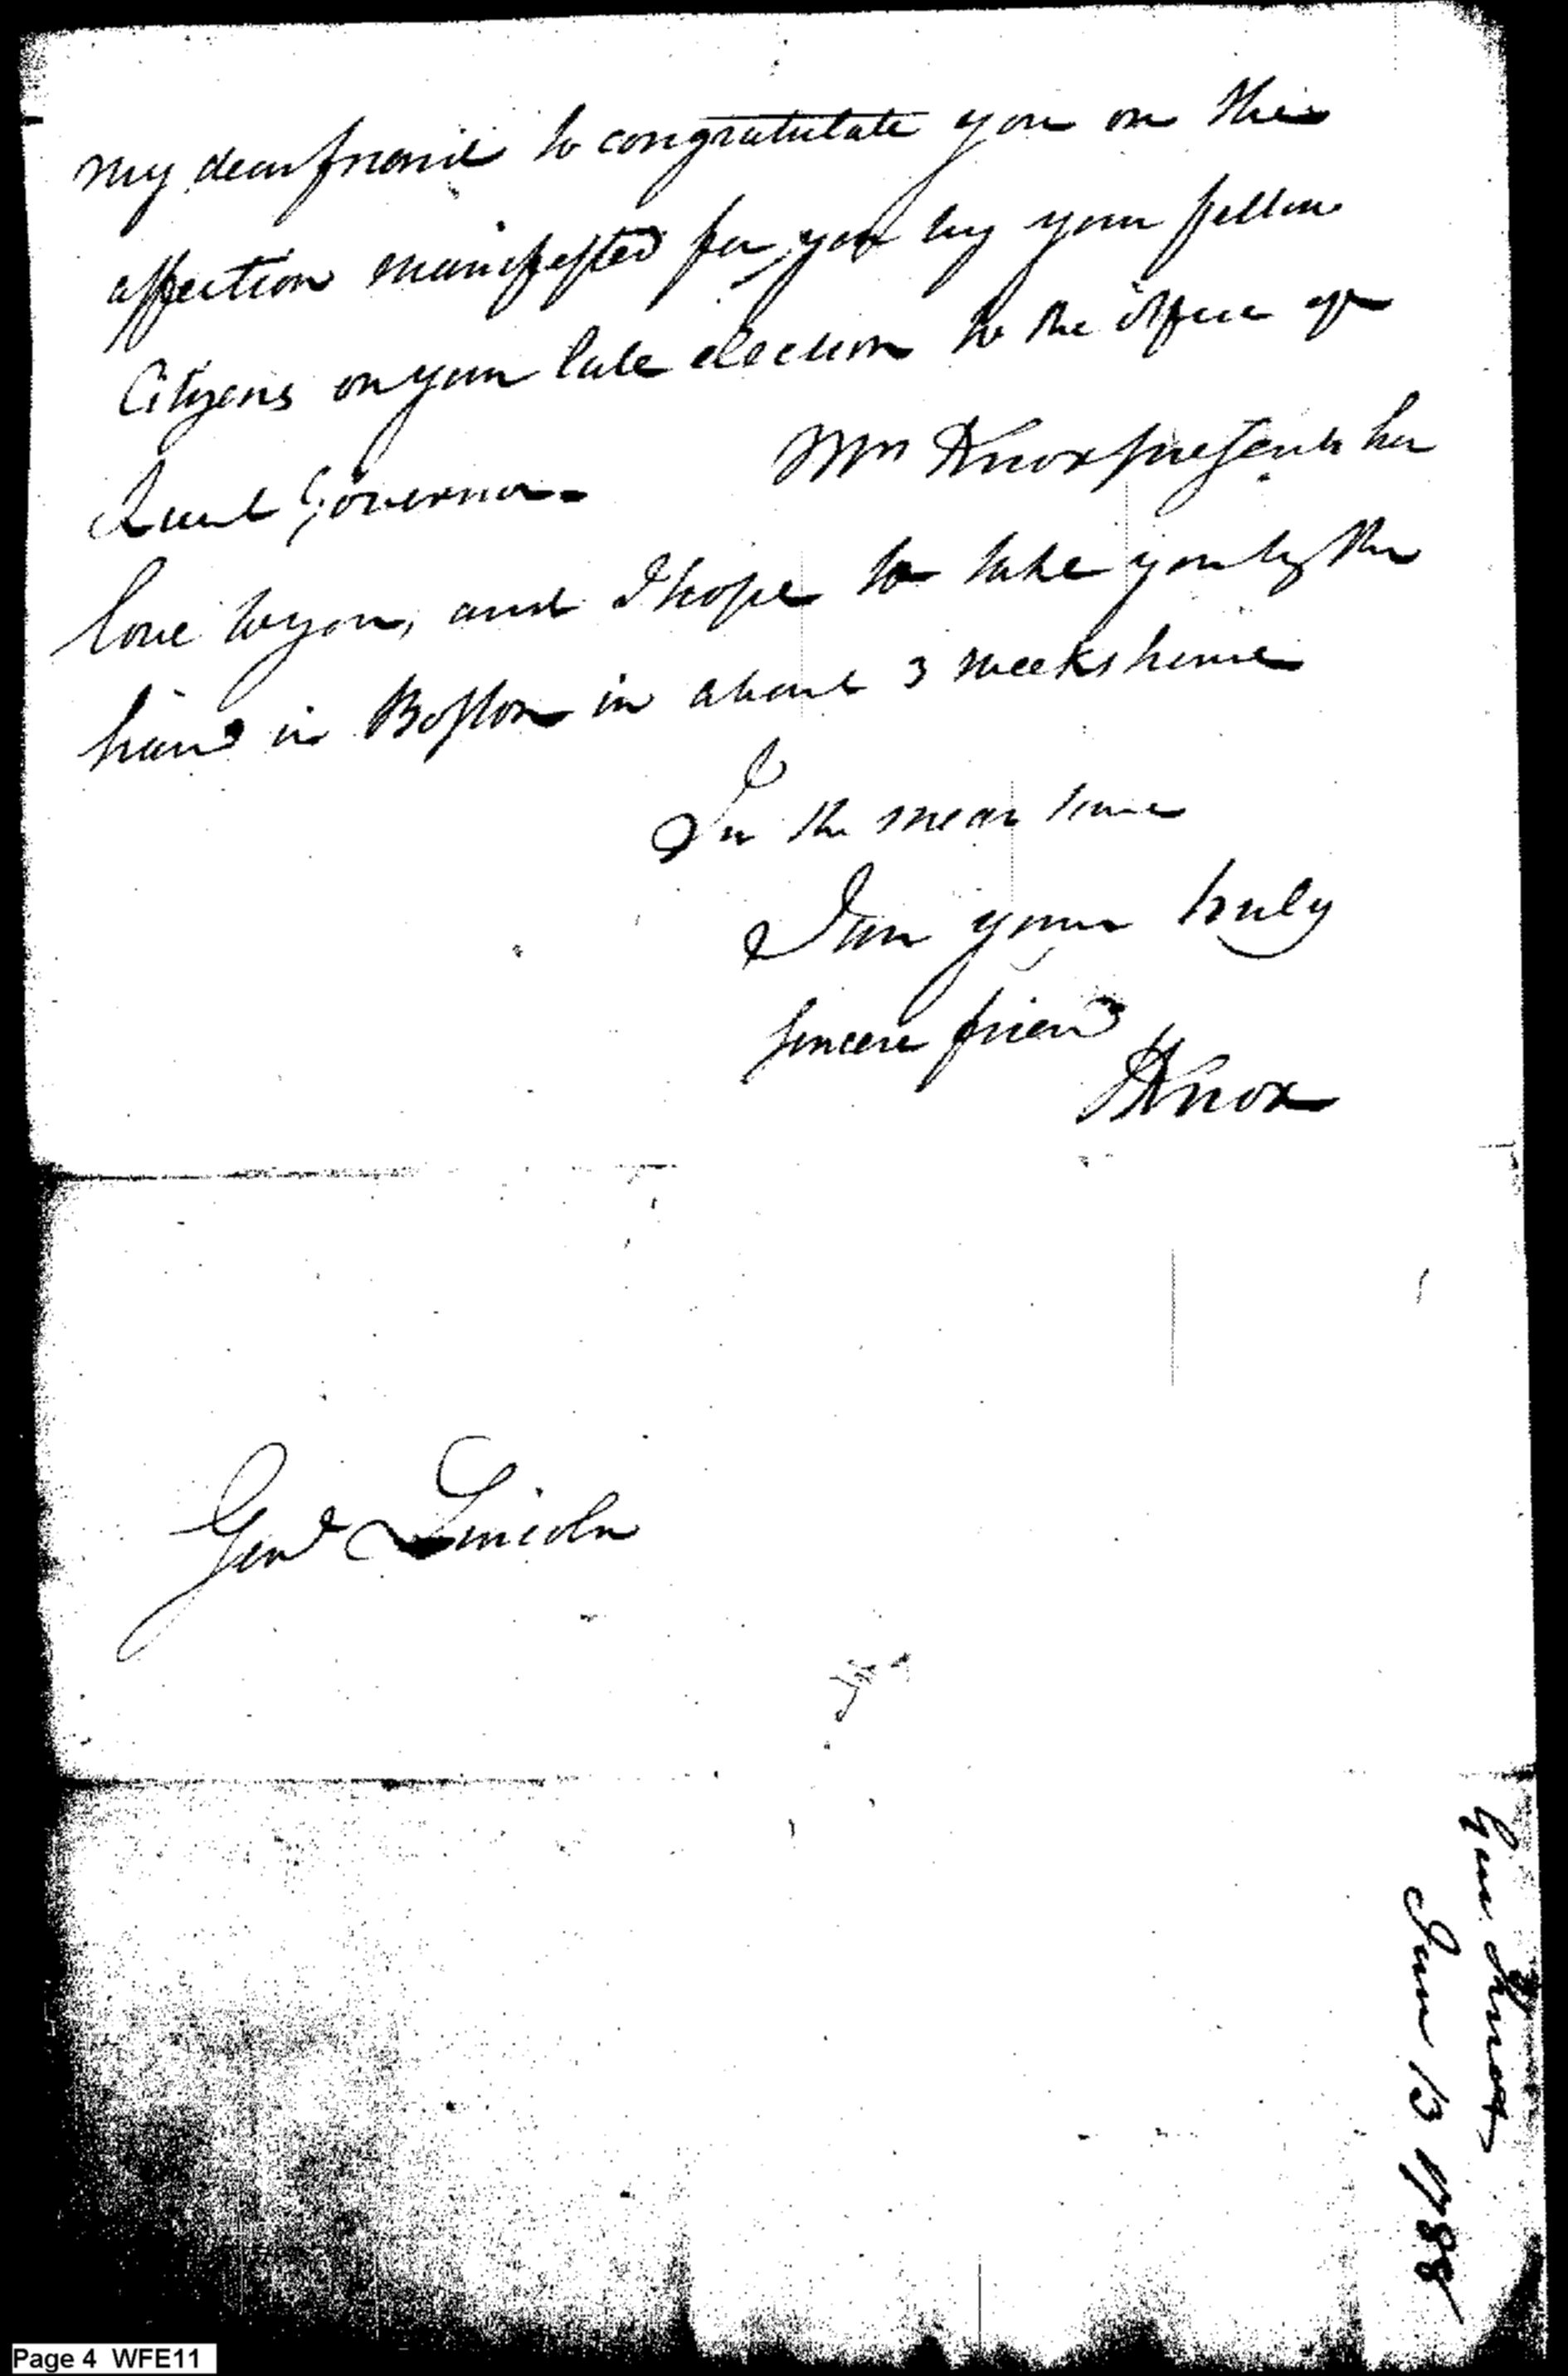 my dear friend to congratulate you on the
affection manifested for you by your fellow
Citizens on your late election to the office of
Lieut Governor. Mrs Knox presents her
love to you, and I hope to take you by the
hand in Boston in about 3 weeks time
In the mean time
I am your truly
sincere friend
HKnox
Genl Lincoln
Genl Knox
June 13 1788
Page 4 WFE11